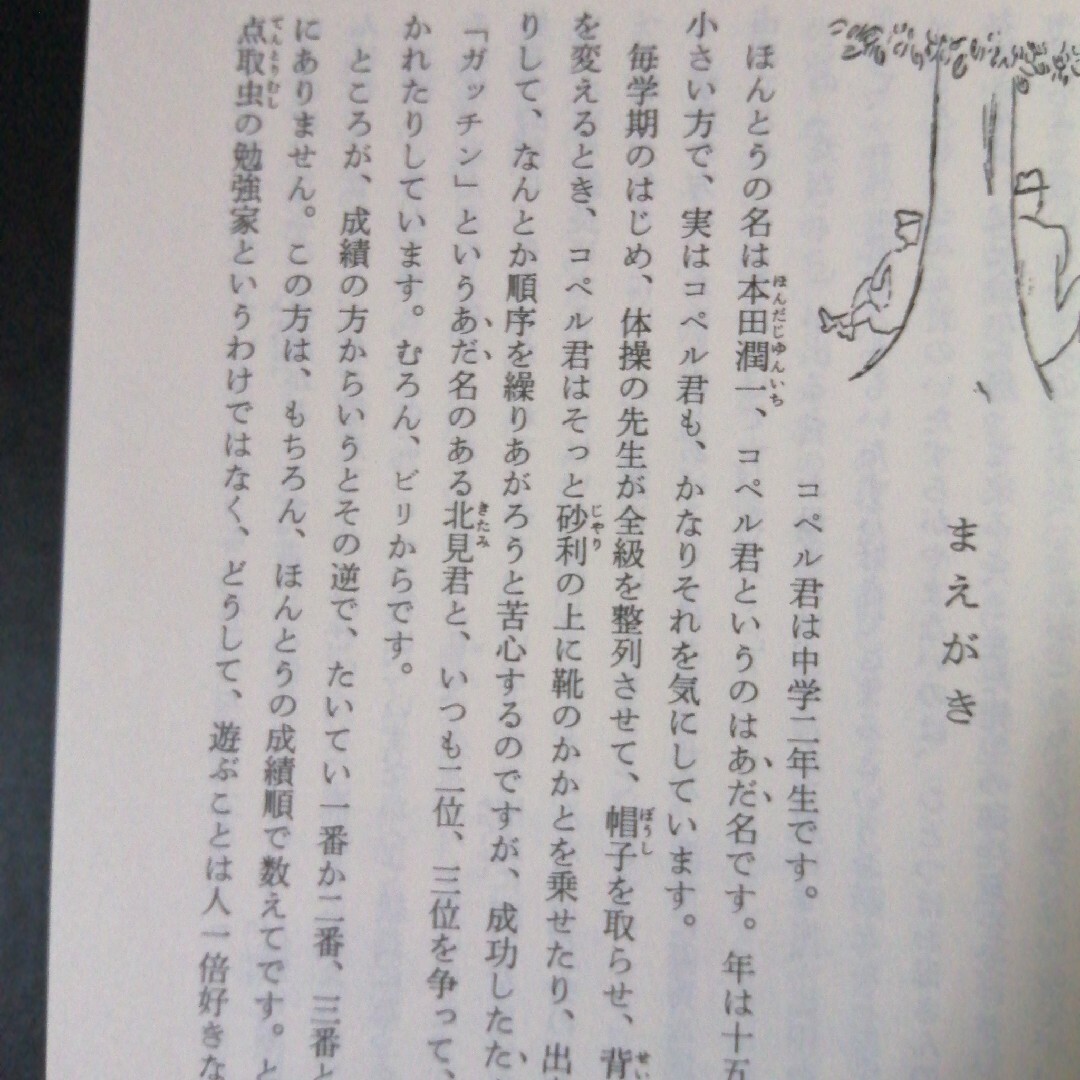 まえがき
コペル君は中学二年生です。
ほんとうの名は本田潤一、コペル君というのはあだ名です。年は十五
小さい方で、実はコペル君も、かなりそれを気にしています。
毎学期のはじめ、体操の先生が全級を整列させて、帽子を取らせ、背
を変えるとき、コペル君はそっと砂利の上に靴のかかとを乗せたり、
りして、なんとか順序を繰りあがろうと苦心するのですが、成功した
「ガッチン」というあだ名のある北見君と、いつも二位、三位を争って、
かれたりしています。むろん、ビリからです。
ところが、成績の方からいうとその逆で、たいてい一番か二番、三番と
にありません。この方は、もちろん、ほんとうの成績順で数えてです。と
点取虫の勉強家というわけではなく、どうして、遊ぶことは人一倍好きな